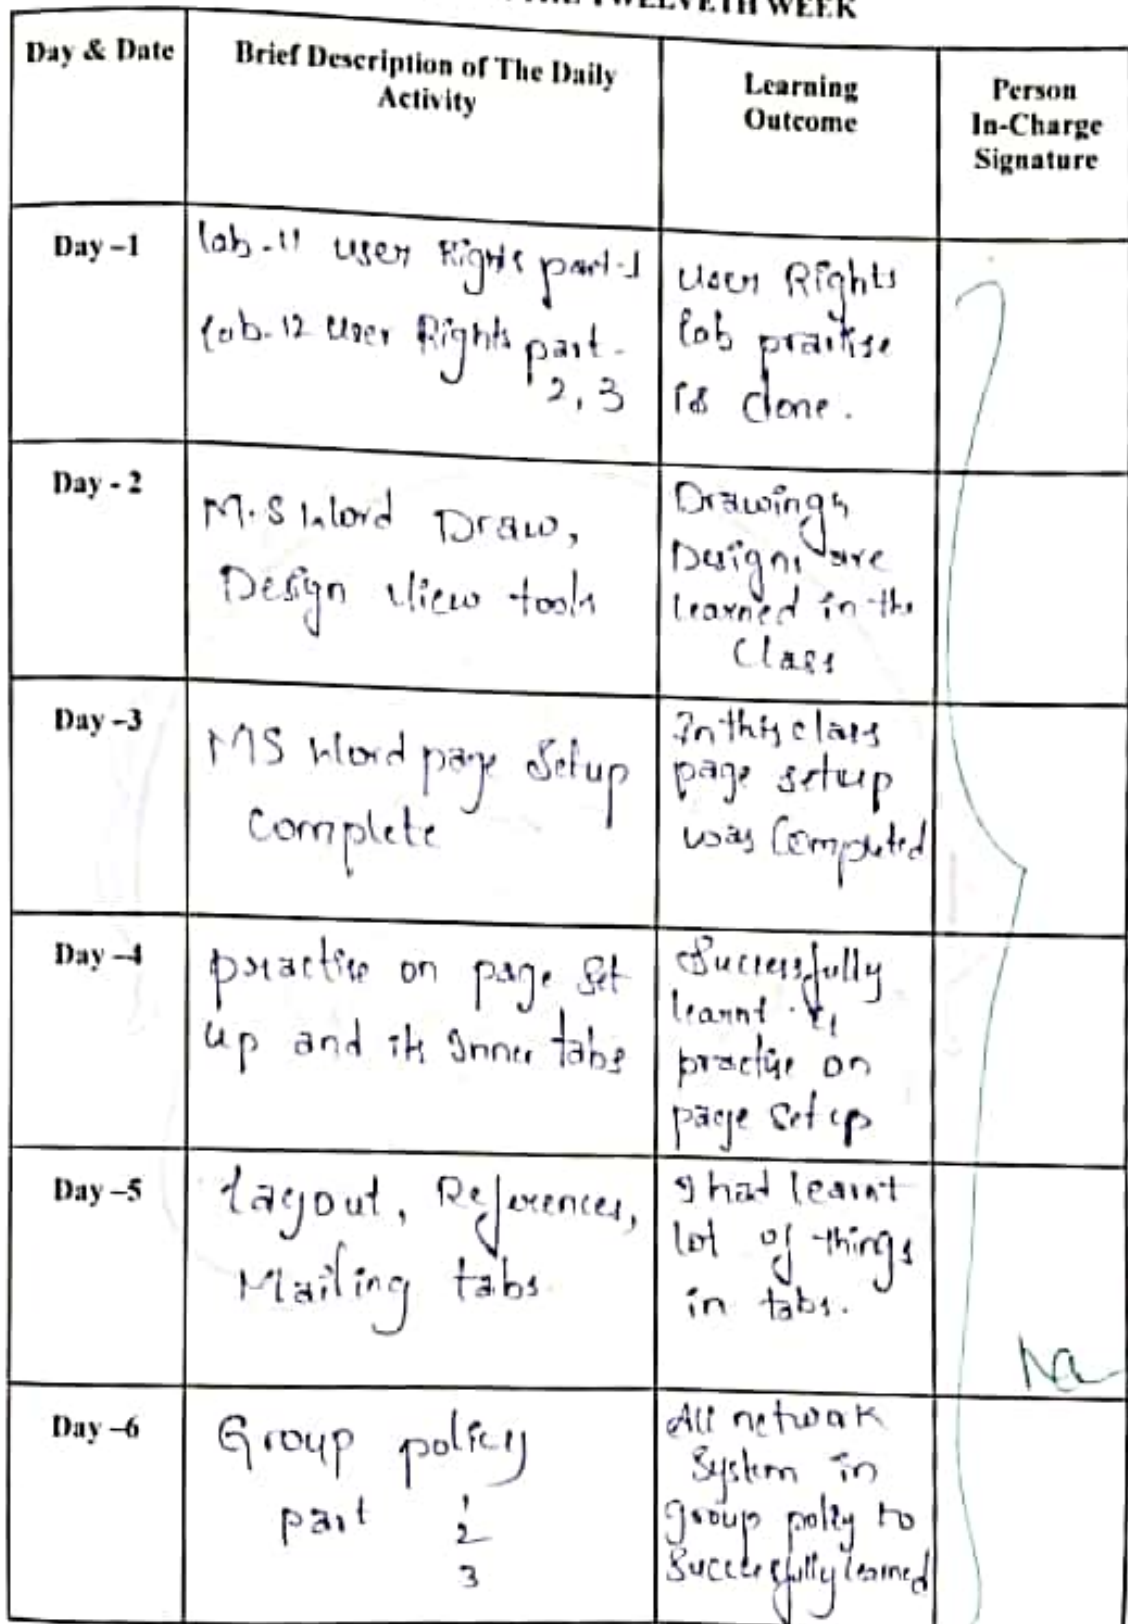 THE TWELVETH WEEK
Day & Date
Brief Description of The Daily
Activity
Learning
Outcome
Person
In-Charge
Signature
Day –1
lab-11 user Rights part-1
lab-12 User Rights part-
2, 3
User Rights
lab practise
is done.
Day - 2
M.S Word Draw,
Design View tools
Drawings
Designs are
learned in the
Class
Day –3
MS Word page Setup
Complete
In this class
page setup
was Completed
Day –4
practise on page Set
up and its Inner tabs
Successfully
learnt
practise on
page Set up
Day –5
Layout, References,
Mailing tabs.
I had learnt
lot of things
in tabs.
Day –6
Group policy
part 1
2
3
All network
System in
group policy to
Successfully learned